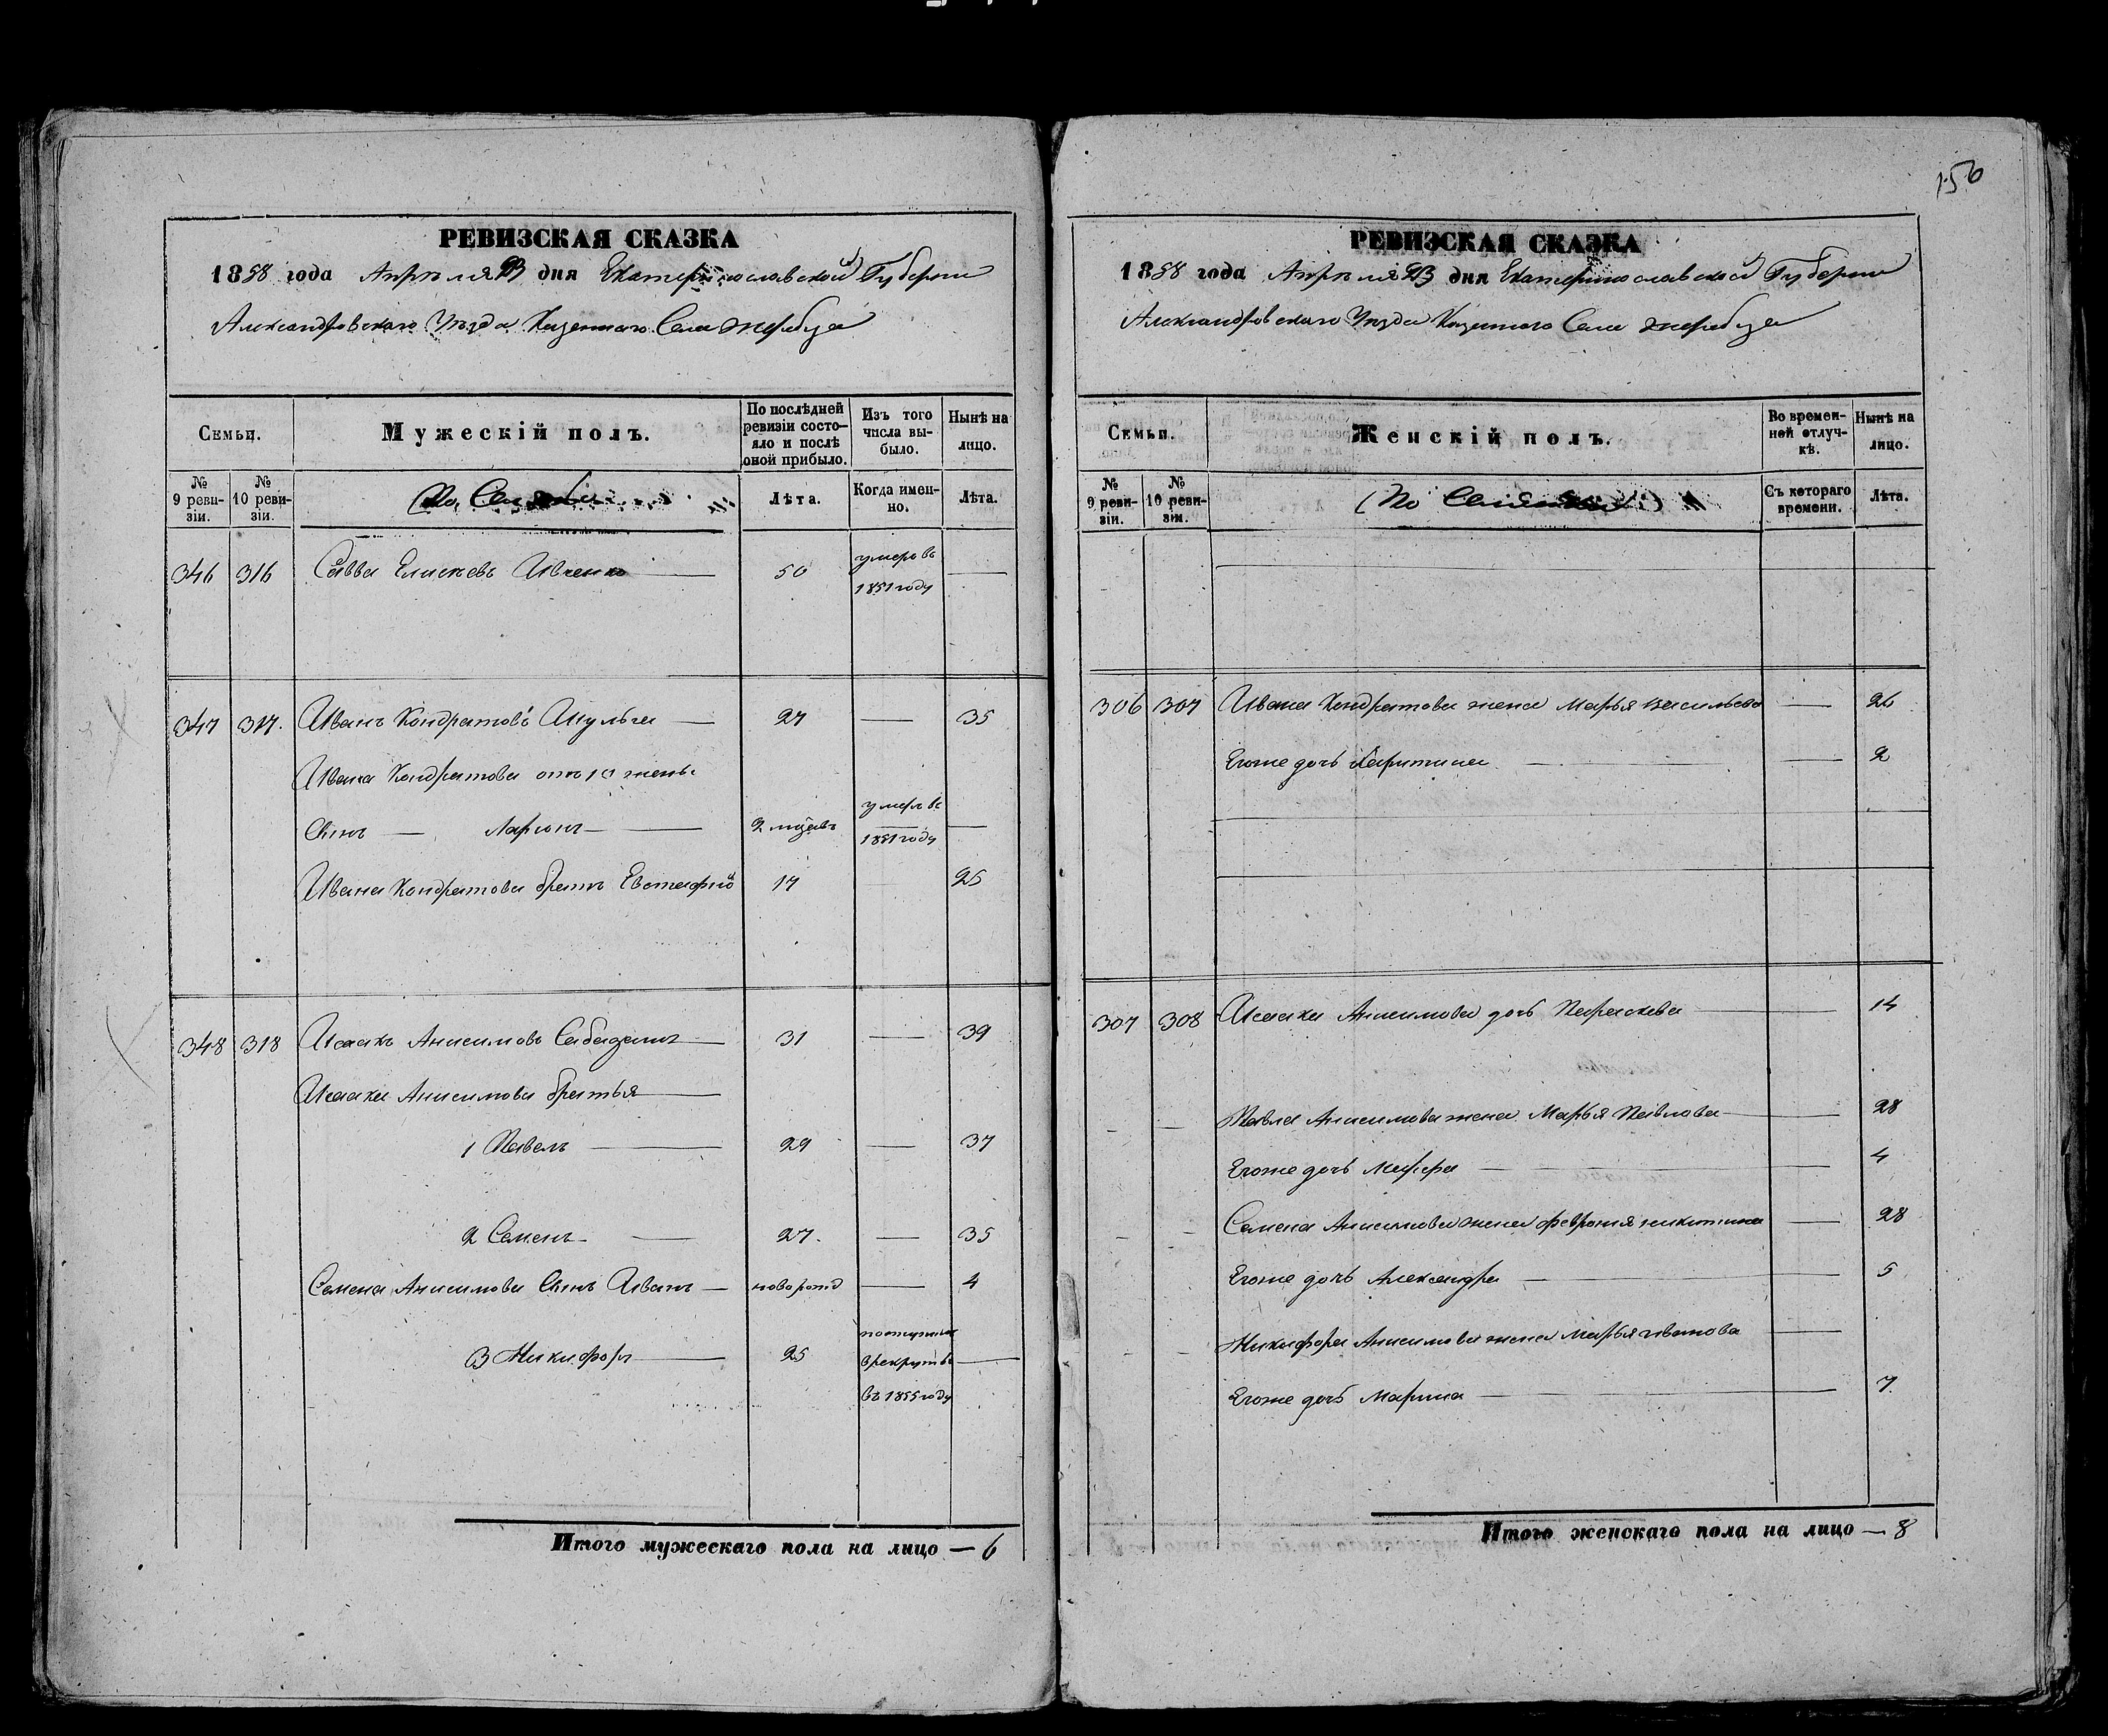 156
РЕВИЗСКАЯ СКАЗКА
1858 года Апрѣля 23 дня Екатеринославской Губерніи
Александровского Уѣзда Казенного Села Жеребца
Семьи.
Мужескій полъ.
По послѣдней ревизіи состояло и послѣ оной прибыло.
Изъ того числа выбыло.
Нынѣ на лицо.
№ 9 ревизіи.
№ 10 ревизіи.
Лѣта.
Когда именно.
Лѣта.
346 316 Савва Елисѣевъ Ивченко — 50 умеръ въ 1851 году —
347 317. Иванъ Кондратовъ Шульга — 27 — 35
Ивана Кондратова отъ 1й жены
Сынъ — Ларіонъ — 2 мѣсяцъ умеръ въ 1851 году —
Ивана Кондратова братъ Евстафій 17 25
348 318 Исаакъ Анисимовъ Сабадашъ — 31 — 39
Исаака Анисимова братья —
1 Павелъ — 29 — 37
2 Семенъ — 27. — 35
Семена Анисимова сынъ Иванъ — новорожд — 4
3 Никифоръ — 25 поступилъ в рекруты въ 1855 году —
Итого мужескаго пола на лицо — 6
РЕВИЗСКАЯ СКАЗКА
1858 года Апрѣля 23 дня Екатеринославской Губерніи
Александровского Уѣзда Казенного Села Жеребца
Семьи.
Женскій полъ.
Во временной отлучкѣ.
Нынѣ на лицо.
№ 9 ревизіи.
№ 10 ревизіи.
(По
Съ котораго времени.
Лѣта.
306 307 Ивана Кондратова жена Марья Васильева — 26
Егоже дочь Харитина — — 2
307 308 Исаака Анисимова дочь Параскева — 14
Павла Анисимова жена Марья Павлова — 28
Егоже дочь Мафра — — 4
Семена Анисимова жена Феврония Никитина — 28
Егоже дочь Александра — — 5
Никифора Анисимова жена Марья Иванова —
Егоже дочь Марина — 7.
Итого женскаго пола на лицо — 8